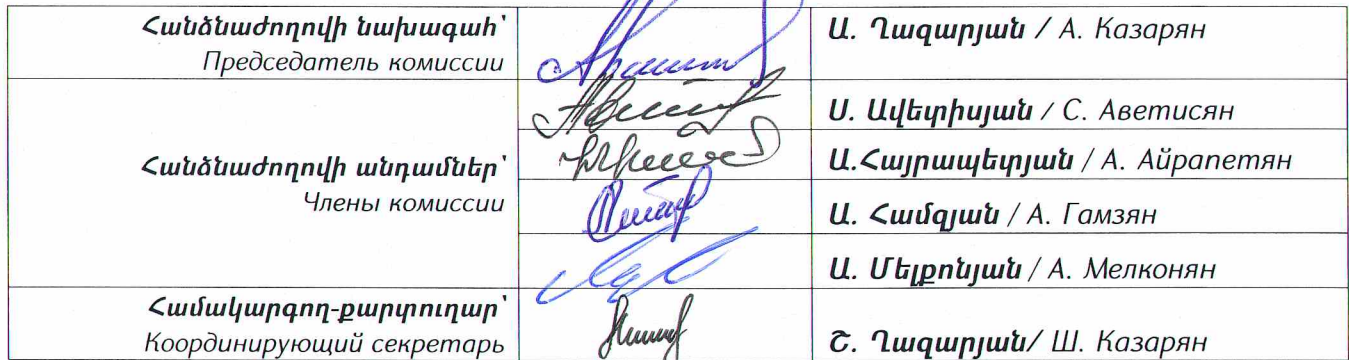 Հանձնաժողովի նախագահ՝
Председатель комиссии
Ա. Ղազարյան / А. Казарян
Ս. Ավետիսյան / С. Аветисян
Հանձնաժողովի անդամներ՝
Члены комиссии
Ա.Հայրապետյան / А. Айрапетян
Ա. Համզյան / А. Гамзян
Ա. Մելքոնյան / А. Мелконян
Համակարգող-քարտուղար՝
Координирующий секретарь
Շ. Ղազարյան/ Ш. Казарян